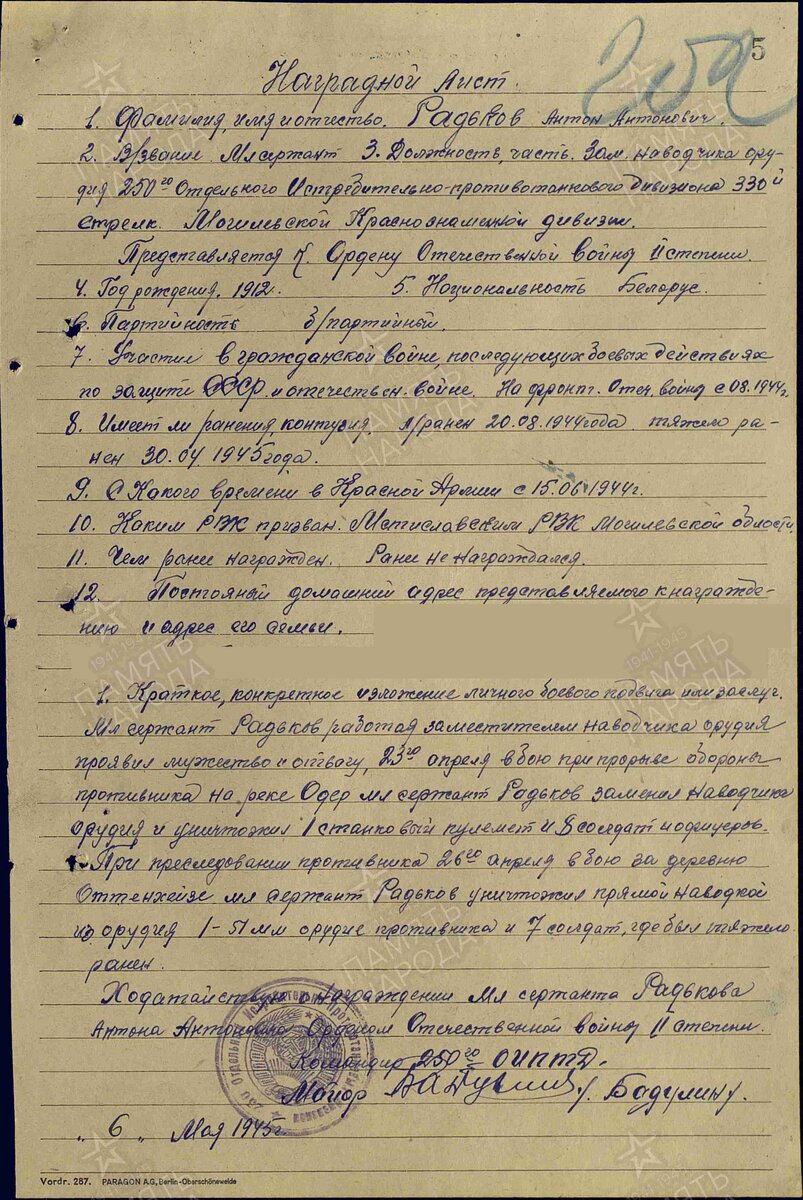 5
Наградной лист.
1. Фамилия, имя и отчество. Радьков Антон Антонович.
2. В/звание. Мл сержант 3. Должность, часть. Зам. наводчика ору-
дия 250го Отдельного Истребительно-противотанкового дивизиона 330й
стрелк. Могилевской Краснознаменной дивизии.
Представляется к. Ордену Отечественной войны II степени.
4. Год рождения. 1912г. 5. Национальность Белорус.
6. Партийность б/партийный.
7. Участил в гражданской войне, последующих боевых действиях
по защити СССР и отечествен. войне. На фронт. Отеч. войны с 08.1944г.
8. Имеет ли ранения, контузия. л/ранен 20.08.1944 года. тяжело ра-
нен 30.04 1945 года.
9. С Какого времени в Красной Армии с 15.06.1944г.
10. Каким РВК призван. Мстиславским РВК Могилевской области.
11. Чем рание награжден. Рание не награждался.
12. Постояный домашний адрес представляемого к награжде-
нию и адрес его семьи.
1. Краткое, конкретное изложение личного боевого подвига или заслуг.
Мл сержант Радьков работая заместителем наводчика орудия
проявил мужество и отвагу, 23го апреля в бою при прорыве обороны
противника на реке Одер мл сержант Радьков заменил наводчика
орудия и уничтожил 1 станковый пулемет и 8 солдат и офицеров.
При преследовании противника 26го апреля в бою за деревню
мл сержант Радьков уничтожил прямой наводкой
из орудия 1-51 мм орудие противника и 7 солдат, где был тяжело
ранен.
Ходатайствую о награждении Мл сержанта Радькова
Антона Антоновича Орденом Отечественной войны II степени.
Командир 250го ОИПТД.
Майор /. Бадулину.
"6" Мая 1945г.
Vordr. 287. PARAGON A.G., Berlin-Oberschöneweide
ПАМЯТЬ НАРОДА
1941-1945